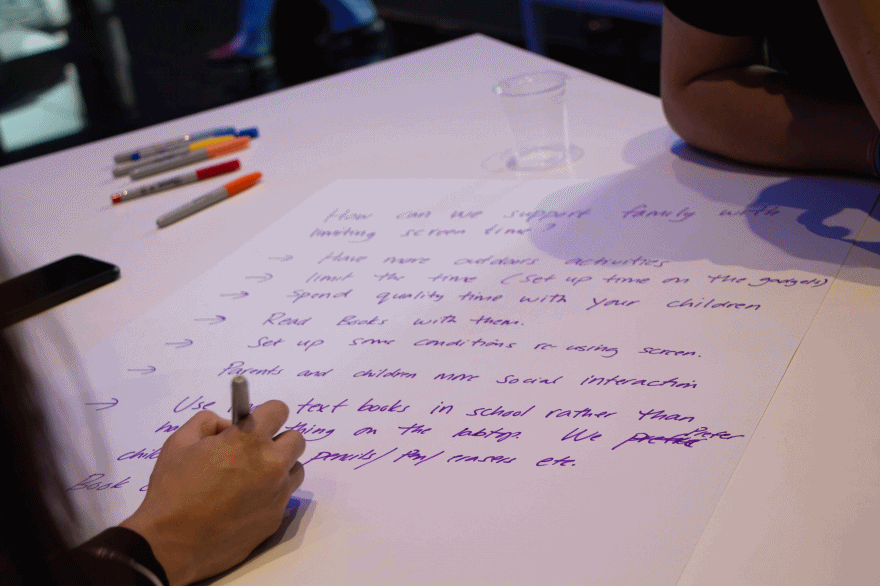 How can we support family with
limiting screen time?
→ Have more outdoors activities
→ limit the time (set up time on the gadgets)
→ Spend quality time with your children
→ Read Books with them.
→ Set up some conditions re-using screen.
→ Parents and children more social interaction
→ Use text books in school rather than
thing on the labtop. We Prefer
pencils/Pen/erasers etc.
Book